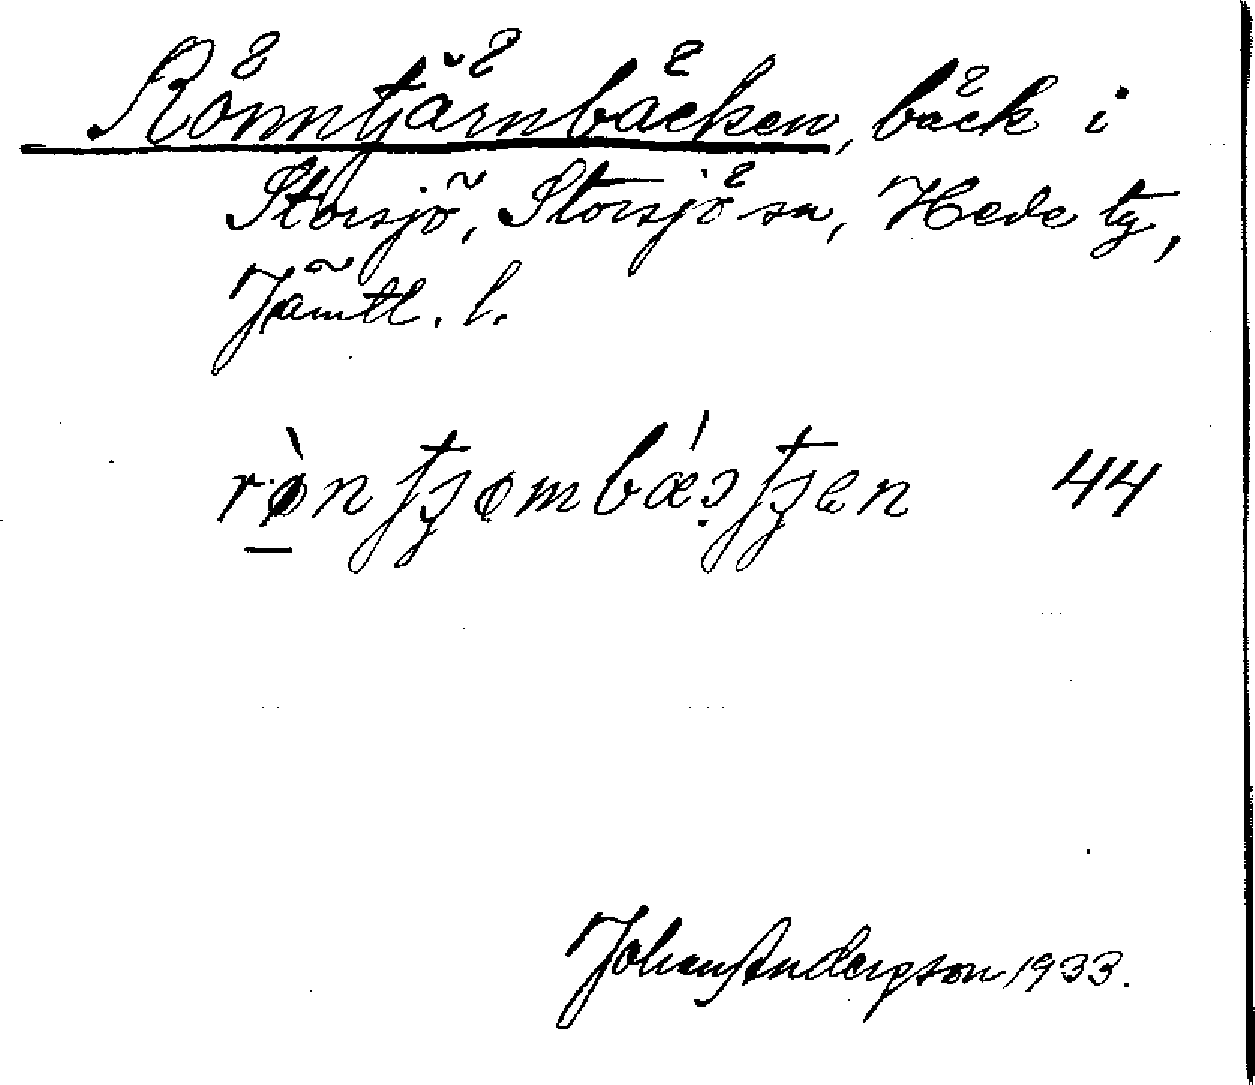 Rönntjärnbäcken, bäck i
Storsjö, Storsjö sn, Hede tg,
Jämtl. l.
44
Johan Anderson 1933.